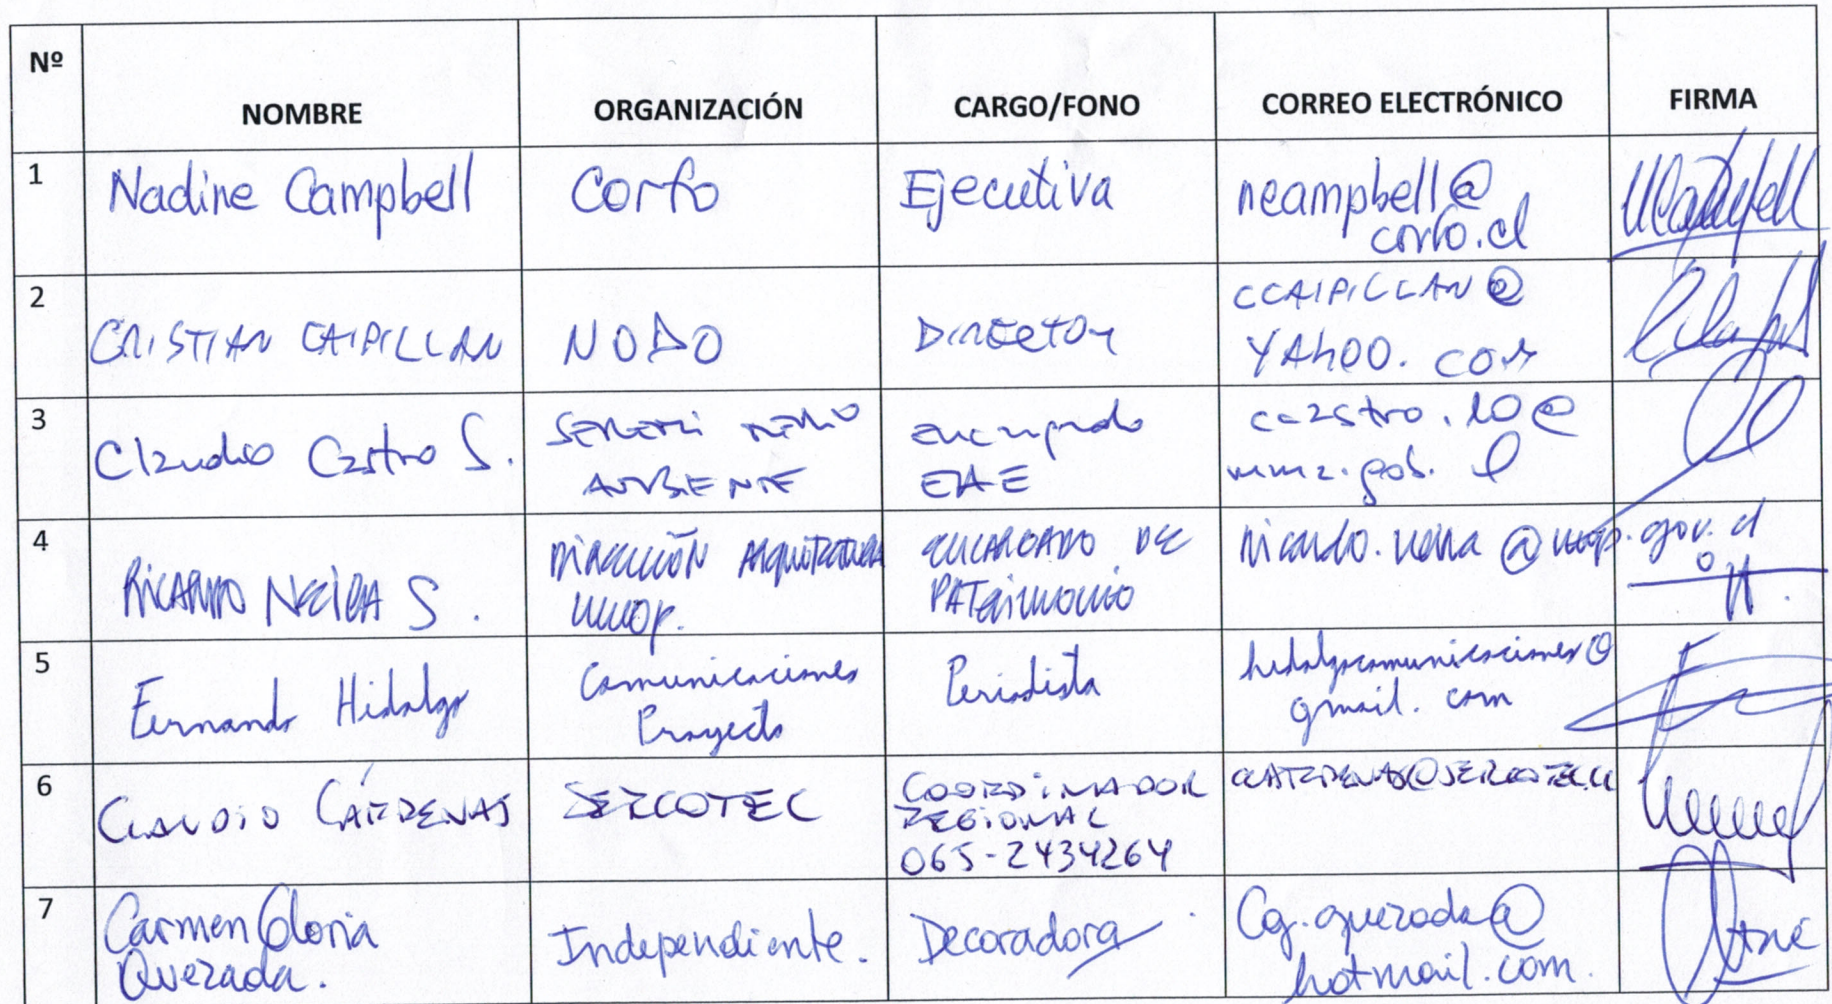 Nº
NOMBRE ORGANIZACIÓN CARGO/FONO CORREO ELECTRÓNICO FIRMA
1
Nadine Campbell
Corfo
Ejecutiva
ncampbell@
corfo.cl
2
CRISTIAN CAIPILLAN
NODO
DIRECTOR
CCAIPILLAN@
YAHOO.COM
3
Claudio Castro S.
SEREMI MEDIO
AMBIENTE
encargado
EAE
ccastro.10@
mma.gob.cl
4
RICARDO NEIRA S.
DIRECCIÓN ARQUITECTURA
MOP.
ENCARGADO DE
PATRIMONIO
ricardo.neira@mop.gov.cl
5
Fernando Hidalgo
Comunicaciones
Proyecto
Periodista
hidalgocomunicaciones@
gmail.com
6
CLAUDIO CÁRDENAS
SERCOTEC
COORDINADOR
REGIONAL
065-2434264
7
Carmen Gloria
Quezada.
Independiente.
Decoradora
Cg.quezada@
hotmail.com.